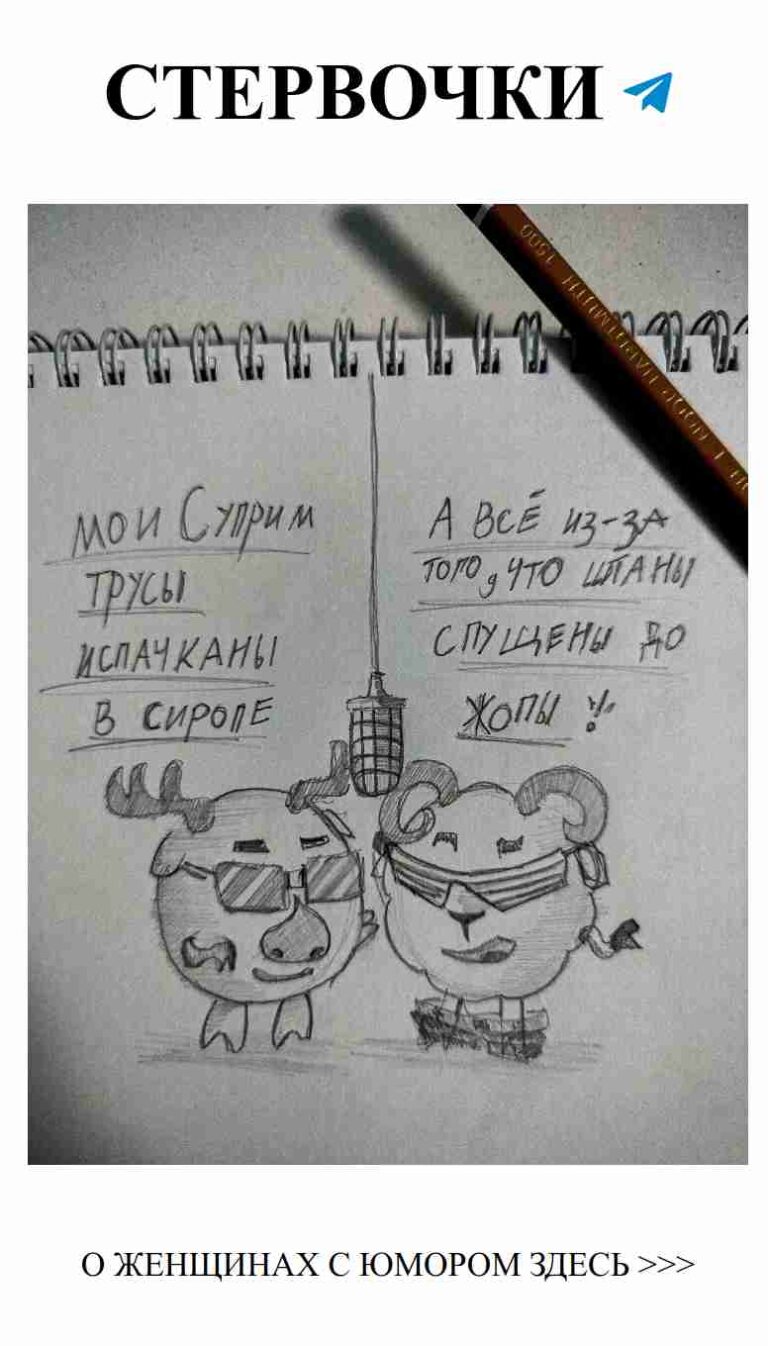 СТЕРВОЧКИ
МОИ СУПРИМ
ТРУСЫ
ИСПАЧКАНЫ
В СИРОПЕ
А ВСЁ ИЗ-ЗА
ТОГО, ЧТО ШТАНЫ
СПУЩЕНЫ ДО
ЖОПЫ !
1500
О ЖЕНЩИНАХ С ЮМОРОМ ЗДЕСЬ >>>